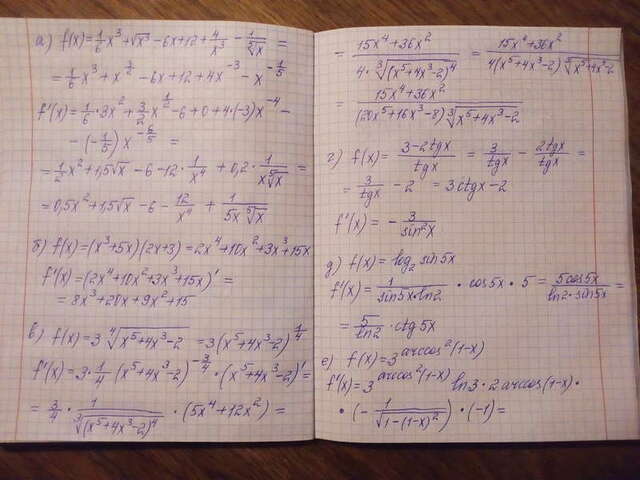 а) f(x)=1/6 x³+√x³-6x+12+4/x³-1/⁵√x =
=1/6 x³+x^(3/2)-6x+12+4x⁻³-x^(-1/5)
f'(x)=1/6·3x²+3/2 x^(1/2)-6+0+4·(-3)x⁻⁴-
-(-1/5)x^(-6/5) =
=1/2 x²+1,5√x-6-12·1/x⁴+0,2·1/(x⁵√x)=
=0,5x²+1,5√x-6-12/x⁴+1/(5x⁵√x)
б) f(x)=(x³+5x)(2x+3)=2x⁴+10x²+3x³+15x
f'(x)=(2x⁴+10x²+3x³+15x)'=
=8x³+20x+9x²+15
в) f(x)=3⁴√(x⁵+4x³-2)=3(x⁵+4x³-2)^(1/4)
f'(x)=3·1/4(x⁵+4x³-2)^(-3/4)·(x⁵+4x³-2)'=
=3/4·1/³√((x⁵+4x³-2)⁴)·(5x⁴+12x²)=
=(15x⁴+36x²)/(4·³√((x⁵+4x³-2)⁴))=(15x⁴+36x²)/(4(x⁵+4x³-2)³√(x⁵+4x³-2))
=(15x⁴+36x²)/((20x⁵+16x³-8)³√(x⁵+4x³-2))
г) f(x)=(3-2tgx)/tgx=3/tgx-2tgx/tgx=
=3/tgx-2=3ctgx-2
f'(x)=-3/sin²x
д) f(x)=log₂sin5x
f'(x)=1/(sin5x·ln2)·cos5x·5=5cos5x/(ln2·sin5x)=
=5/ln2·ctg5x
е) f(x)=3^(arccos²(1-x))
f'(x)=3^(arccos²(1-x)) ln3·2arccos(1-x)·
·(-1/√(1-(1-x)²))·(-1)=